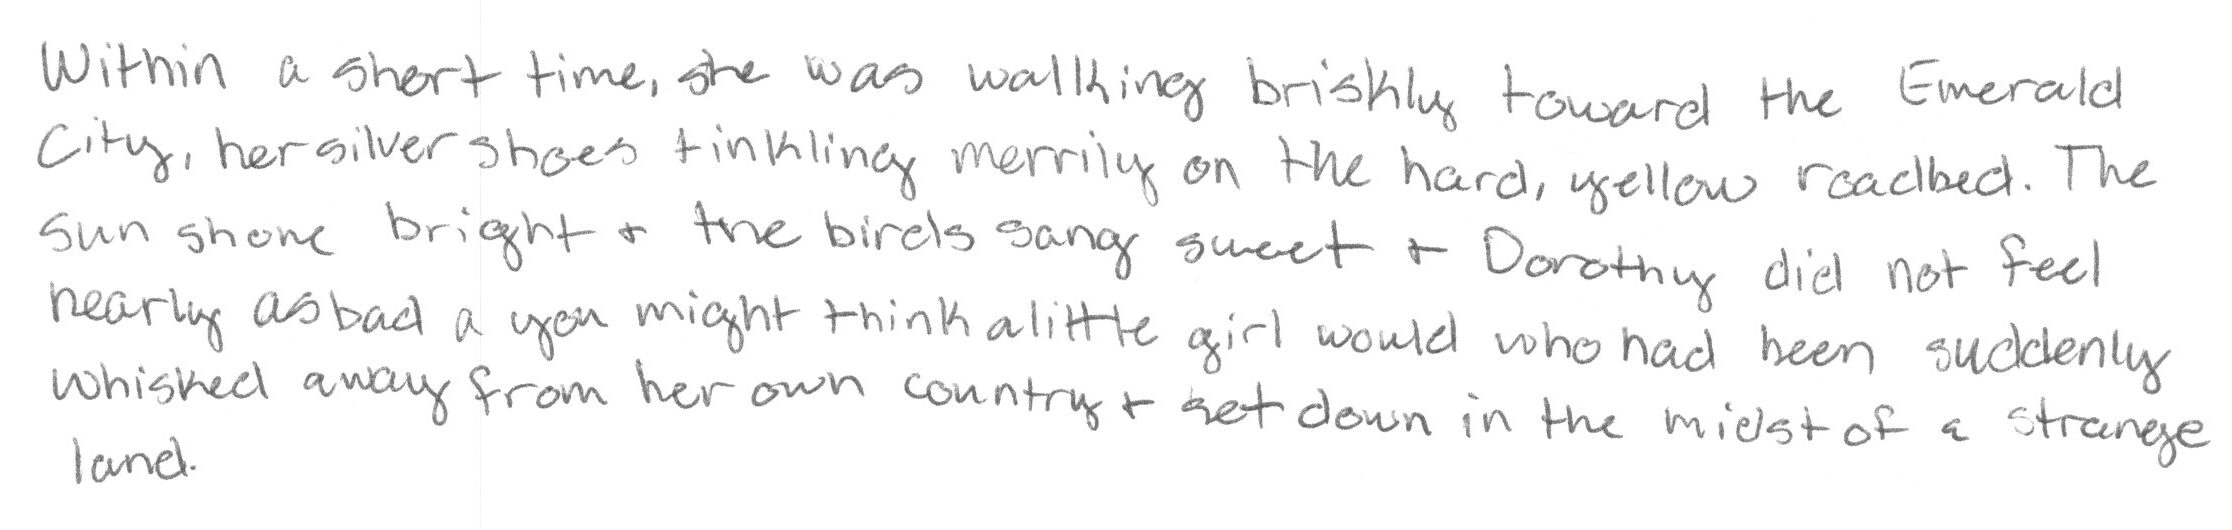 Within a short time, she was walking briskly toward the Emerald
City, her silver shoes tinkling merrily on the hard, yellow roadbed. The
sun shone bright + the birds sang sweet + Dorothy did not feel
nearly as bad a you might think a little girl would who had been suddenly
whisked away from her own country + set down in the midst of a strange
land.